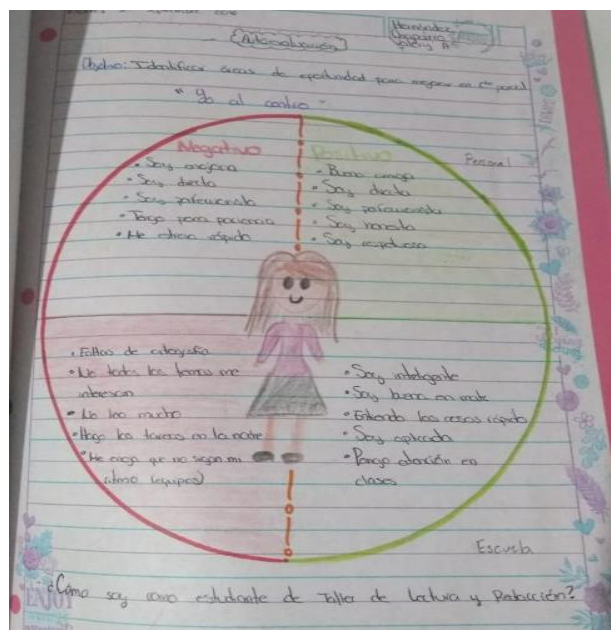 Autoevaluación
Hernández
Valery A.
Objetivo: Identificar áreas de oportunidad para mejorar en 1er parcial
"Yo al centro"
Negativo
• Soy enojona
• Soy directa
• Soy perfeccionista
• Tengo poca paciencia
• Me estreso rápido
Positivo
• Buena amiga
• Soy directa
• Soy perfeccionista
• Soy honesta
• Soy respetuosa
Personal
• Faltas de ortografía
• No todos los temas me
interesan
• No leo mucho
• Hago las tareas en la noche
• Me enoja que no sigan mi
ritmo (equipos)
• Soy inteligente
• Soy buena en mate
• Entiendo las cosas rápido
• Soy aplicada
• Pongo atención en
clases
Escuela
¿Cómo soy como estudiante de Taller de Lectura y Redacción?
ENJOY